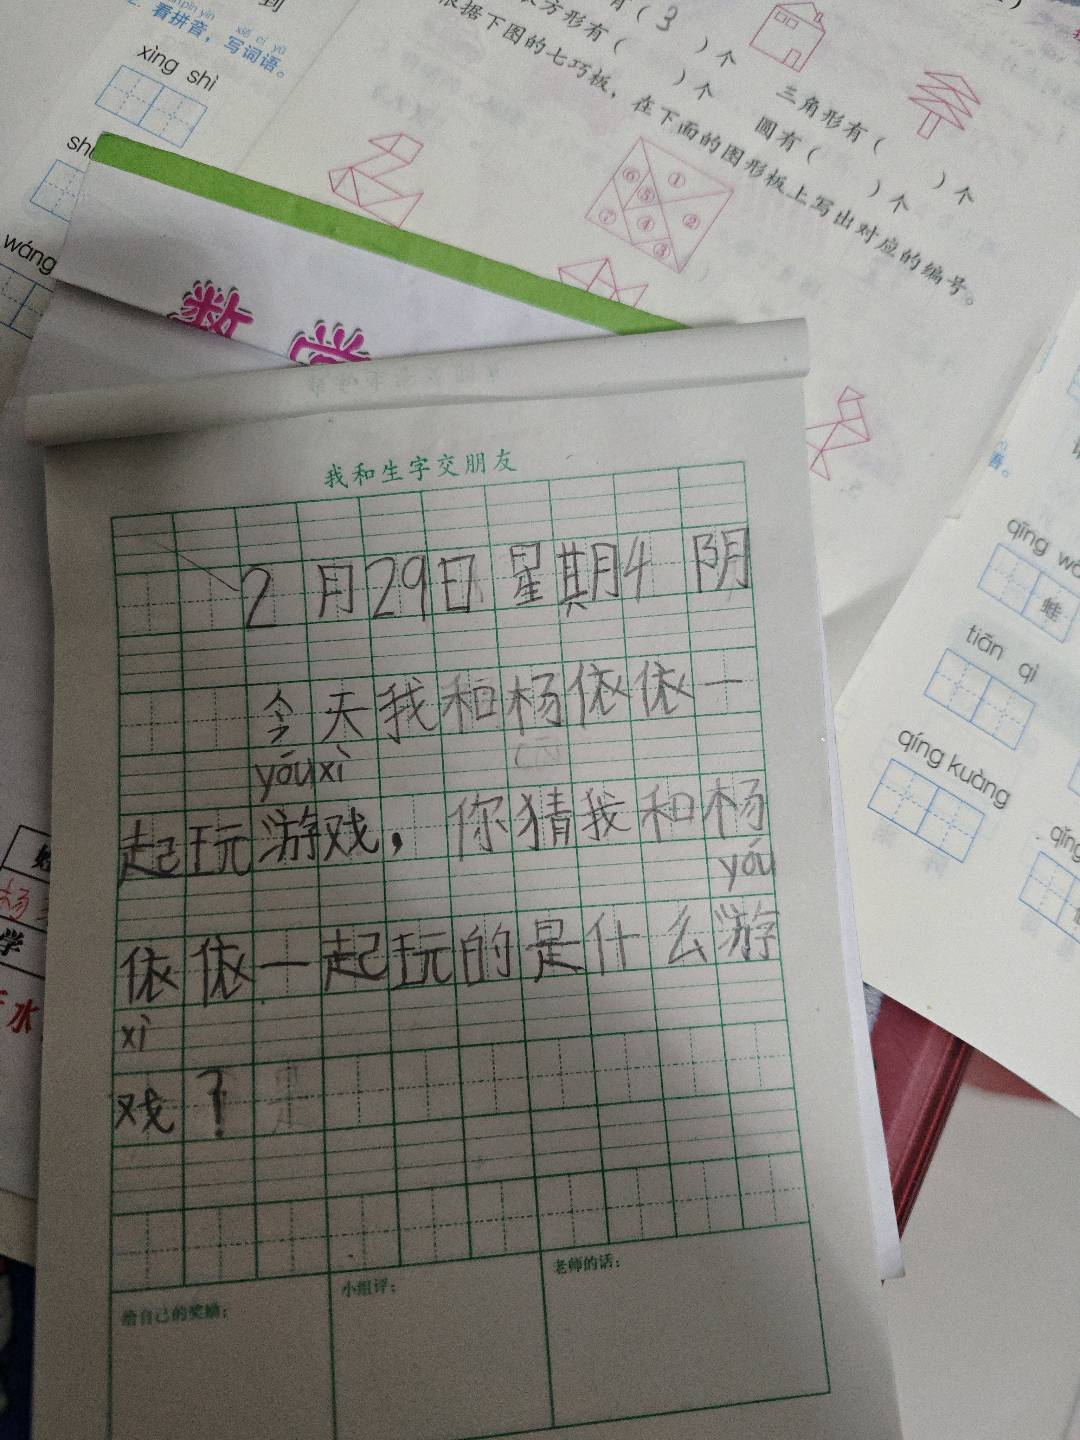 到
2. 看拼音，写词语。
xīng shì
wáng
有（3）个
方形有（ ）个
三角形有（ ）个
圆有（ ）个
根据下图的七巧板，在下面的图形板上写出对应的编号。
① ② ③ ④ ⑤ ⑥ ⑦
数学
我和生字交朋友
2月29日 星期4 阴
今天我和杨依依一
yóu xì
起玩游戏，你猜我和杨
yóu
依依一起玩的是什么游
xì
戏？
给自己的奖励：
小组评：
老师的话：
杨
学
水
qīng wā
蛙
tiān qì
qíng kuàng